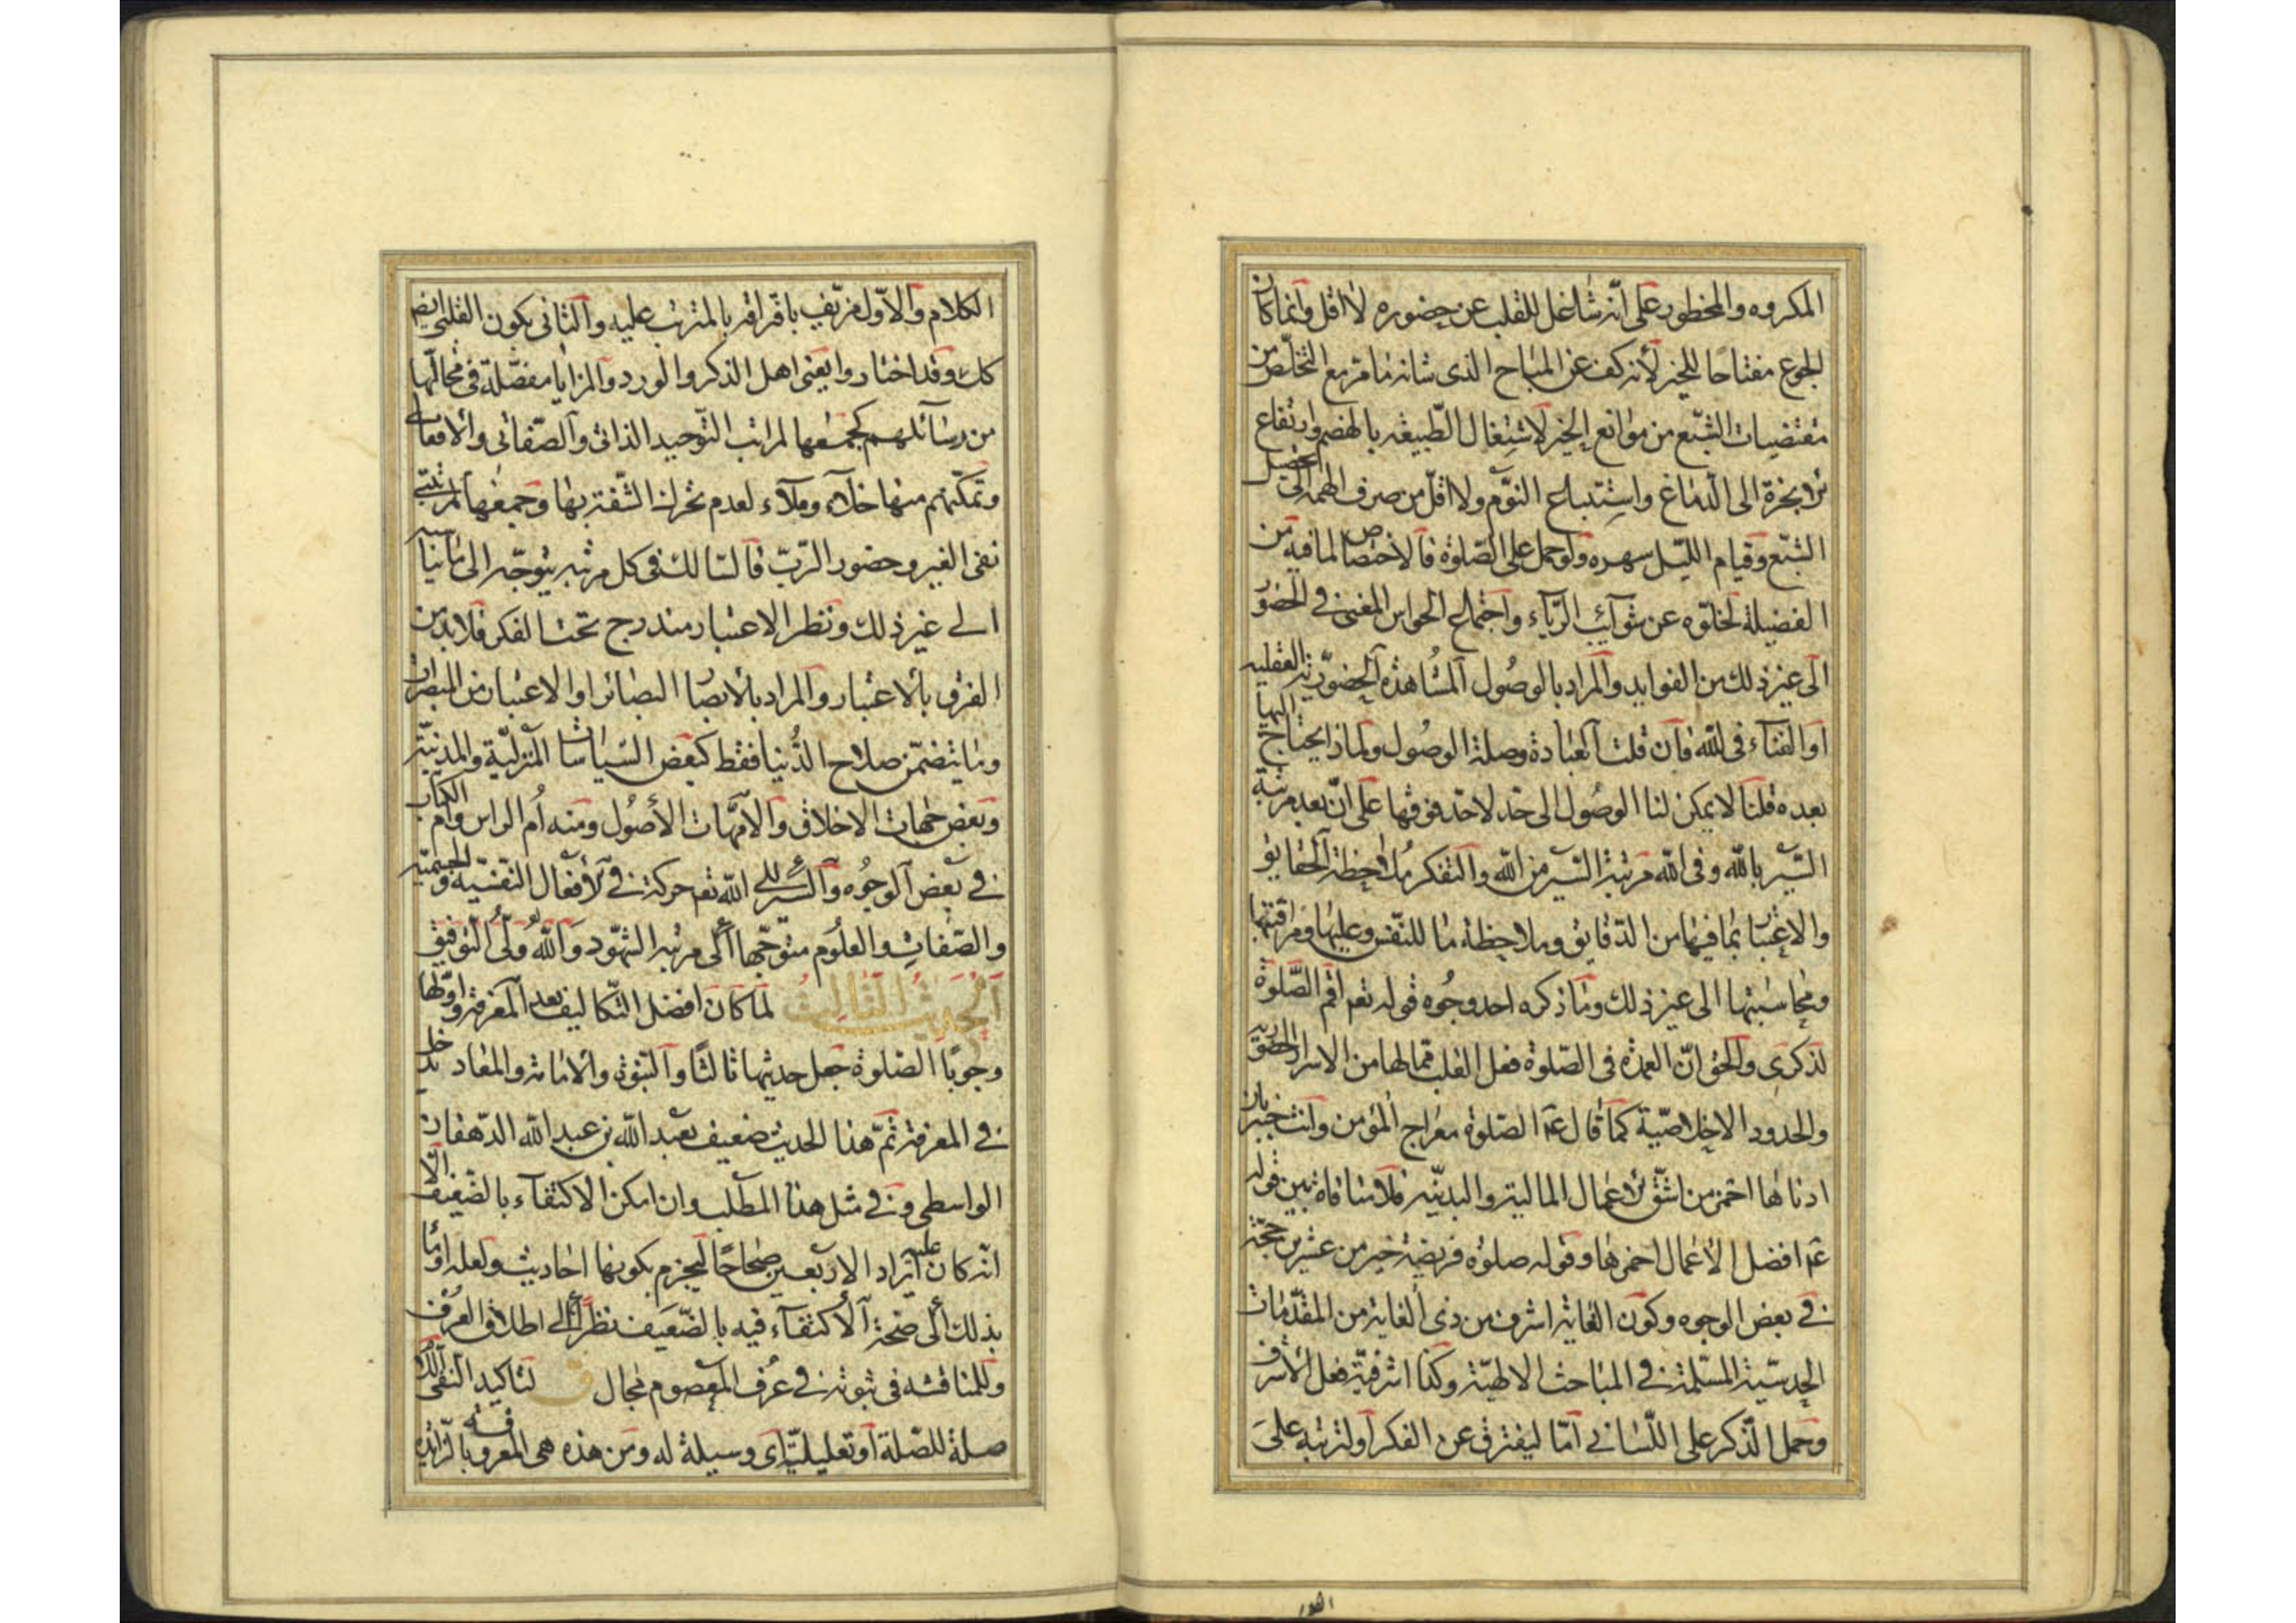 المكروه والمحظور على انّه شاغل للقلب عن حضوره لا اقل وانما كان
الجوع مفتاحًا للخير لأنه كف عن المباح الذى شانه ما مرّ مع التخلّص من
مقتضيات الشبع من موانع الخير لاشتغال الطّبيعه بالهضم وارتفاع
الابخرة الى الدّماغ واستتباع النوّم ولا اقلّ من صرف الهمه الى تحصيل
الشبّع وقيام الليّل سهره ولو حمل على الصّلوة فالاختصاص لما فيه من
الفضيلة لخلّوه عن شوآئب الرّيآء واجتماع الحواس المغنى فى الحضوّر
الى غير ذلك من الفوايد والمراد بالوصُول المشاهدة الحضوّرية العقليه
او الفنآء فى اللّه فان قلت العبادة وصلة الوصُول ولماذا يحتاج اليها
بعده قلنا لا يمكن لنا الوصُول الى حد لا حد فوقها على انّ بعد مرتبة
السّير باللّه وفى اللّه مرتبة السّير من اللّه والتفكر ملاحظة الحقايق
والاعتبار بما فيها من الدّقايق وملاحظة ما للنّفس وعليها ومراقبتها
ومحاسبتها الى غير ذلك وما ذكره احد وجُوه قوله تعم اقم الصّلوة
لذكرى والحق انّ العمدة فى الصّلوة فعل القلب فما لها من الاسرار
والحدود الاخلاصيّة كما قال عم الصّلوة معراج المؤمن وانت خبير بان
ادناها احمز من اشقّ الاعمال المالية والبدنيّه فلا منافاة بين قوله
عم افضل الاعمال احمزها وقوله صلوة فريضة خير من عشرين حجّة
فى بعض الوجوه وكون الغاية اشرف من ذى الغاية من المقدّمات
الحدسيّة المسّلمة فى المباحث الالهيّة وكذا اشرفيّة فعل الاشرف
وحمل الذّكر على اللّسانى امّا ليفترق عن الفكر او لترتبه على
الكلام والاوّل مزيّف بافتراقه بالمترتب عليه والثانى بكون القلبى ايضا
كك وقد اختاروا يعنى اهل الذكر والورد والمزايا مفصّلة فى محالّها
من رسآئلهم كجمعها لمراتب التّوحيد الذاتى والصّفاتى والافعالى
وتمكّنهم منها خلآء وملآء لعدم تحرك الشّفة بها وجمعها لمرتبتى
نفى الغير وحضور الرّبّ فالسّالك فى كل مرتبه يتوجّه الى
الى غير ذلك ونظر الاعتبار مندرج تحت الفكر فلا بد من
الفرق بالاعتبار والمراد بالابصار البصائر او الاعتبار من المبصرات
وما يتضمّن صلاح الدُّنيا فقط كبعض السّياسات المنزليّة والمدنيّة
وبعض جهات الاخلاق والأمّهات الأصُول ومنه اُم الراس وام الكتاب
فى بعض الوجُوه والسّير الى اللّه تعم حركة فى الافعال النفسّية والجسميّة
والصّفات والعلوُم متوجّها الى مرتبه الشّهود وَاللّه ولىّ التّوفيق
اَلحَدِيثُ الثَّالِثُ لما كان افضل التّكاليف بعد المعرفة واوّلها
وجوبًا الصّلوة جعل حديثها ثالثًا والنّبوة والامامة والمعاد يدخل
فى المعرفة ثمّ هذا الحديث ضعيف بعبد اللّه بن عبد اللّه الدّهقان
الواسطى وفى مثل هذا المطلب وان امكن الاكتفآء بالضّعيف الا
انّه كان عليه ايراد الاربعين صحاحًا ليجزم بكونها احاديث ولعله اومأ
بذلك الى صحّة الاكتفآء فيه بالضّعيف نظرًا الى اطلاق العرف
وللمناقشه فى ثبوته فى عُرف المعصوم مجال ق لتاكيد النفى
صلة للصّلة او تعليليّة اى وسيلة له ومن هذه هى المعروفة بالزّائدة